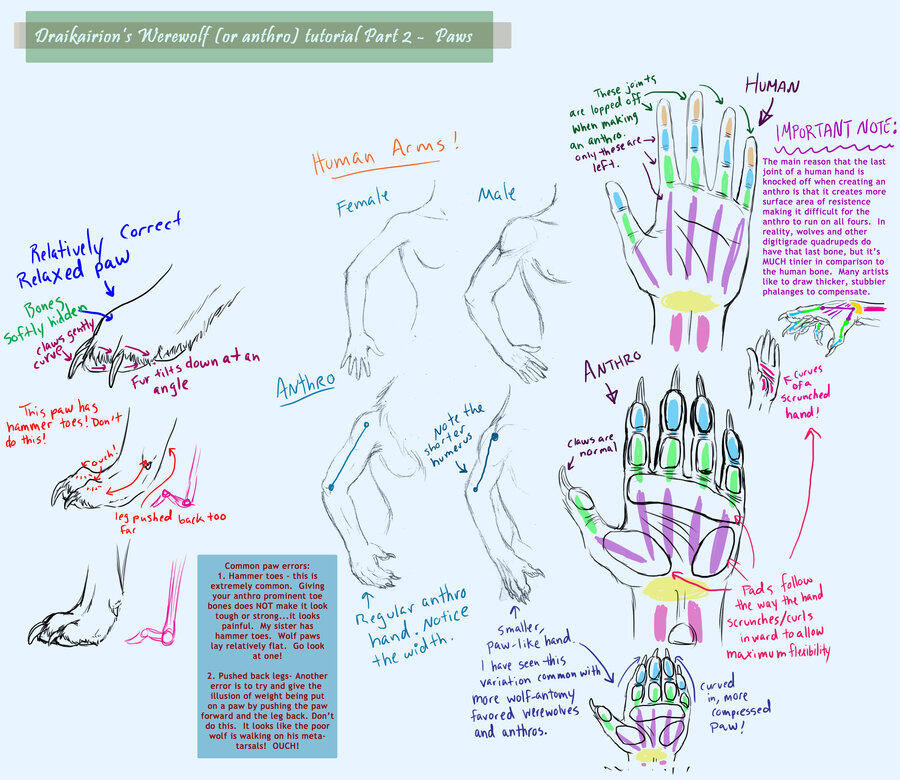 Draikairion's Werewolf (or anthro) tutorial Part 2 - Paws
Human Arms!
Female
Male
These joints
are lopped off
when making
an anthro.
only these are
left.
HUMAN
IMPORTANT NOTE:
The main reason that the last
joint of a human hand is
knocked off when creating an
anthro is that it creates more
surface area of resistence
making it difficult for the
anthro to run on all fours. In
reality, wolves and other
digitigrade quadrupeds do
have that last bone, but it's
MUCH tinier in comparison to
the human bone. Many artists
like to draw thicker, stubbier
phalanges to compensate.
Relatively Correct
Relaxed paw
Bones
softly hidden
claws gently
curve
Fur tilts down at an
angle
This paw has
hammer toes! Don't
do this!
ouch!
leg pushed back too
far
Common paw errors:
1. Hammer toes - this is
extremely common. Giving
your anthro prominent toe
bones does NOT make it look
tough or strong...it looks
painful. My sister has
hammer toes. Wolf paws
lay relatively flat. Go look
at one!
2. Pushed back legs- Another
error is to try and give the
illusion of weight being put
on a paw by pushing the paw
forward and the leg back. Don't
do this. It looks like the poor
wolf is walking on his meta-
tarsals! OUCH!
ANTHRO
Note the
shorter
humerus
Regular anthro
hand. Notice
the width.
Smaller,
paw-like hand.
I have seen this
variation common with
more wolf-antomy
favored werewolves
and anthros.
ANTHRO
claws are
normal
Curves
of a
scrunched
hand!
Pads follow
the way the hand
scrunches/curls
inward to allow
maximum flexibility
curved
in, more
compressed
Paw!